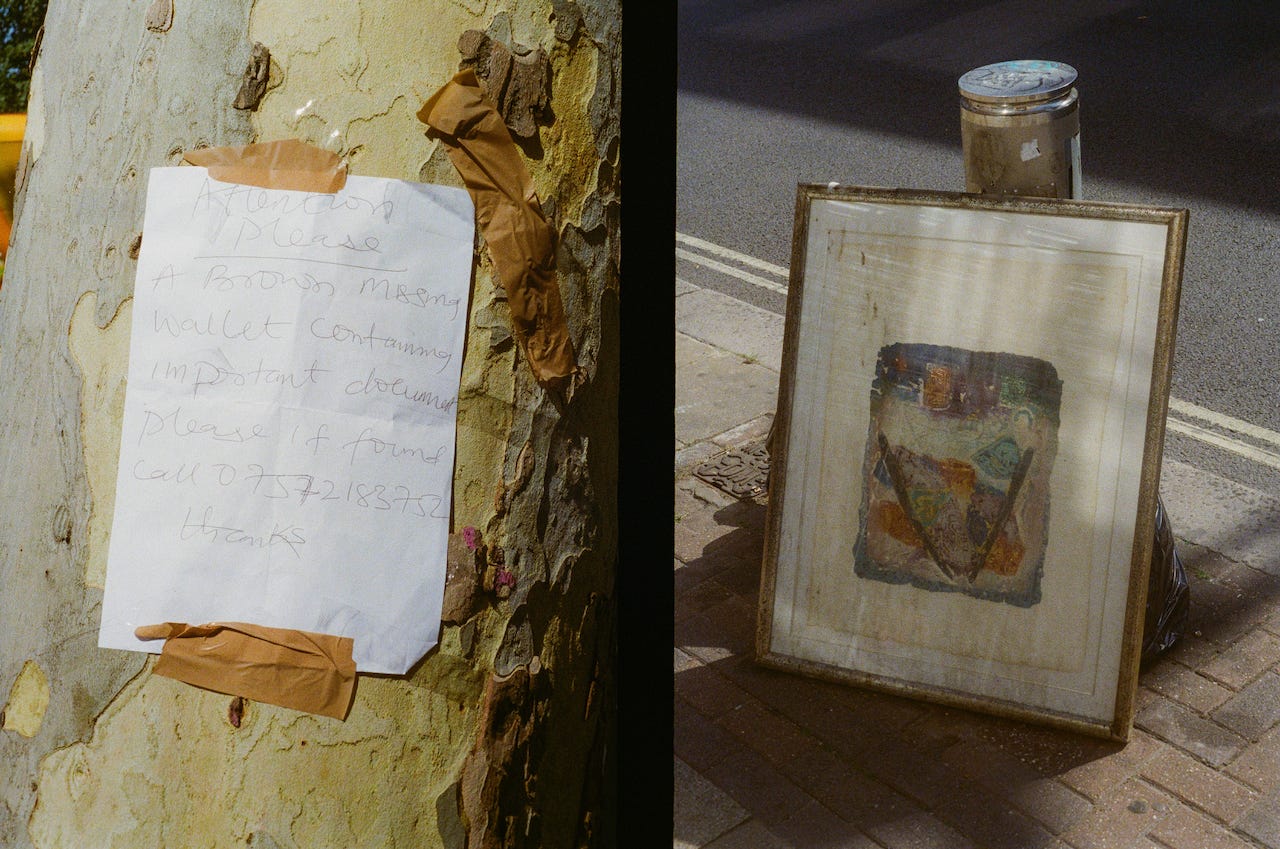 Attention
Please
A Brown missing
wallet containing
important document
please if found
call 07572183752
thanks